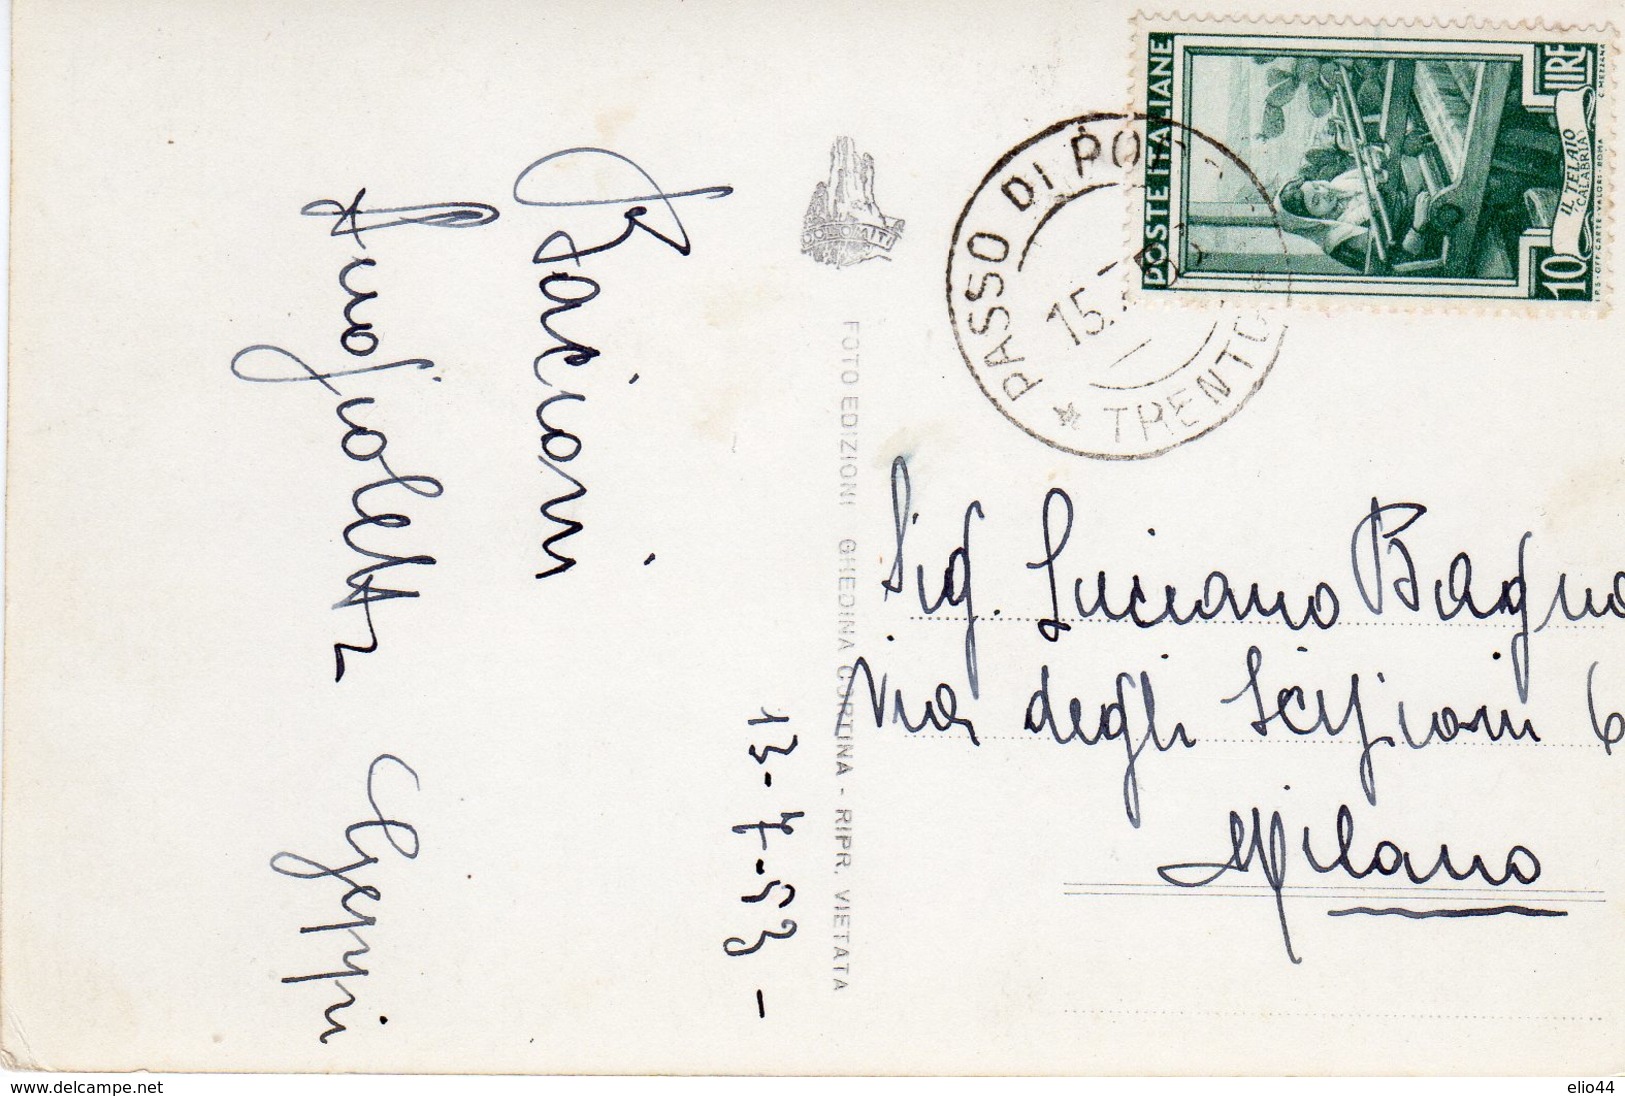 Bacioni
13-7-53-
DOLOMITI
FOTO EDIZIONI GHEDINA CORTINA - RIPR. VIETATA
POSTE ITALIANE
10 LIRE
IL TELAIO
(CALABRIA)
I.P.S.-OFF. CARTE-VALORI-ROMA
C. MEZZANA
PASSO DI PO
15.
TRENTO
Sig. Luciano Bagno
Via degli Scipioni 6
Milano
delcampe.net
elio44